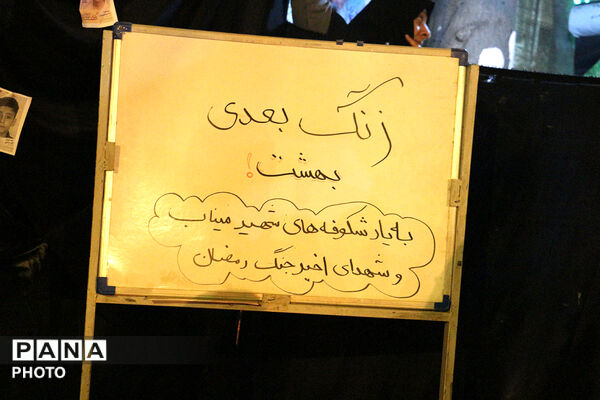 زنگ بعدی
بهشت!
به یاد شکوفه‌های شهید میناب
و شهدای اخیر جنگ رمضان
PANA
PHOTO